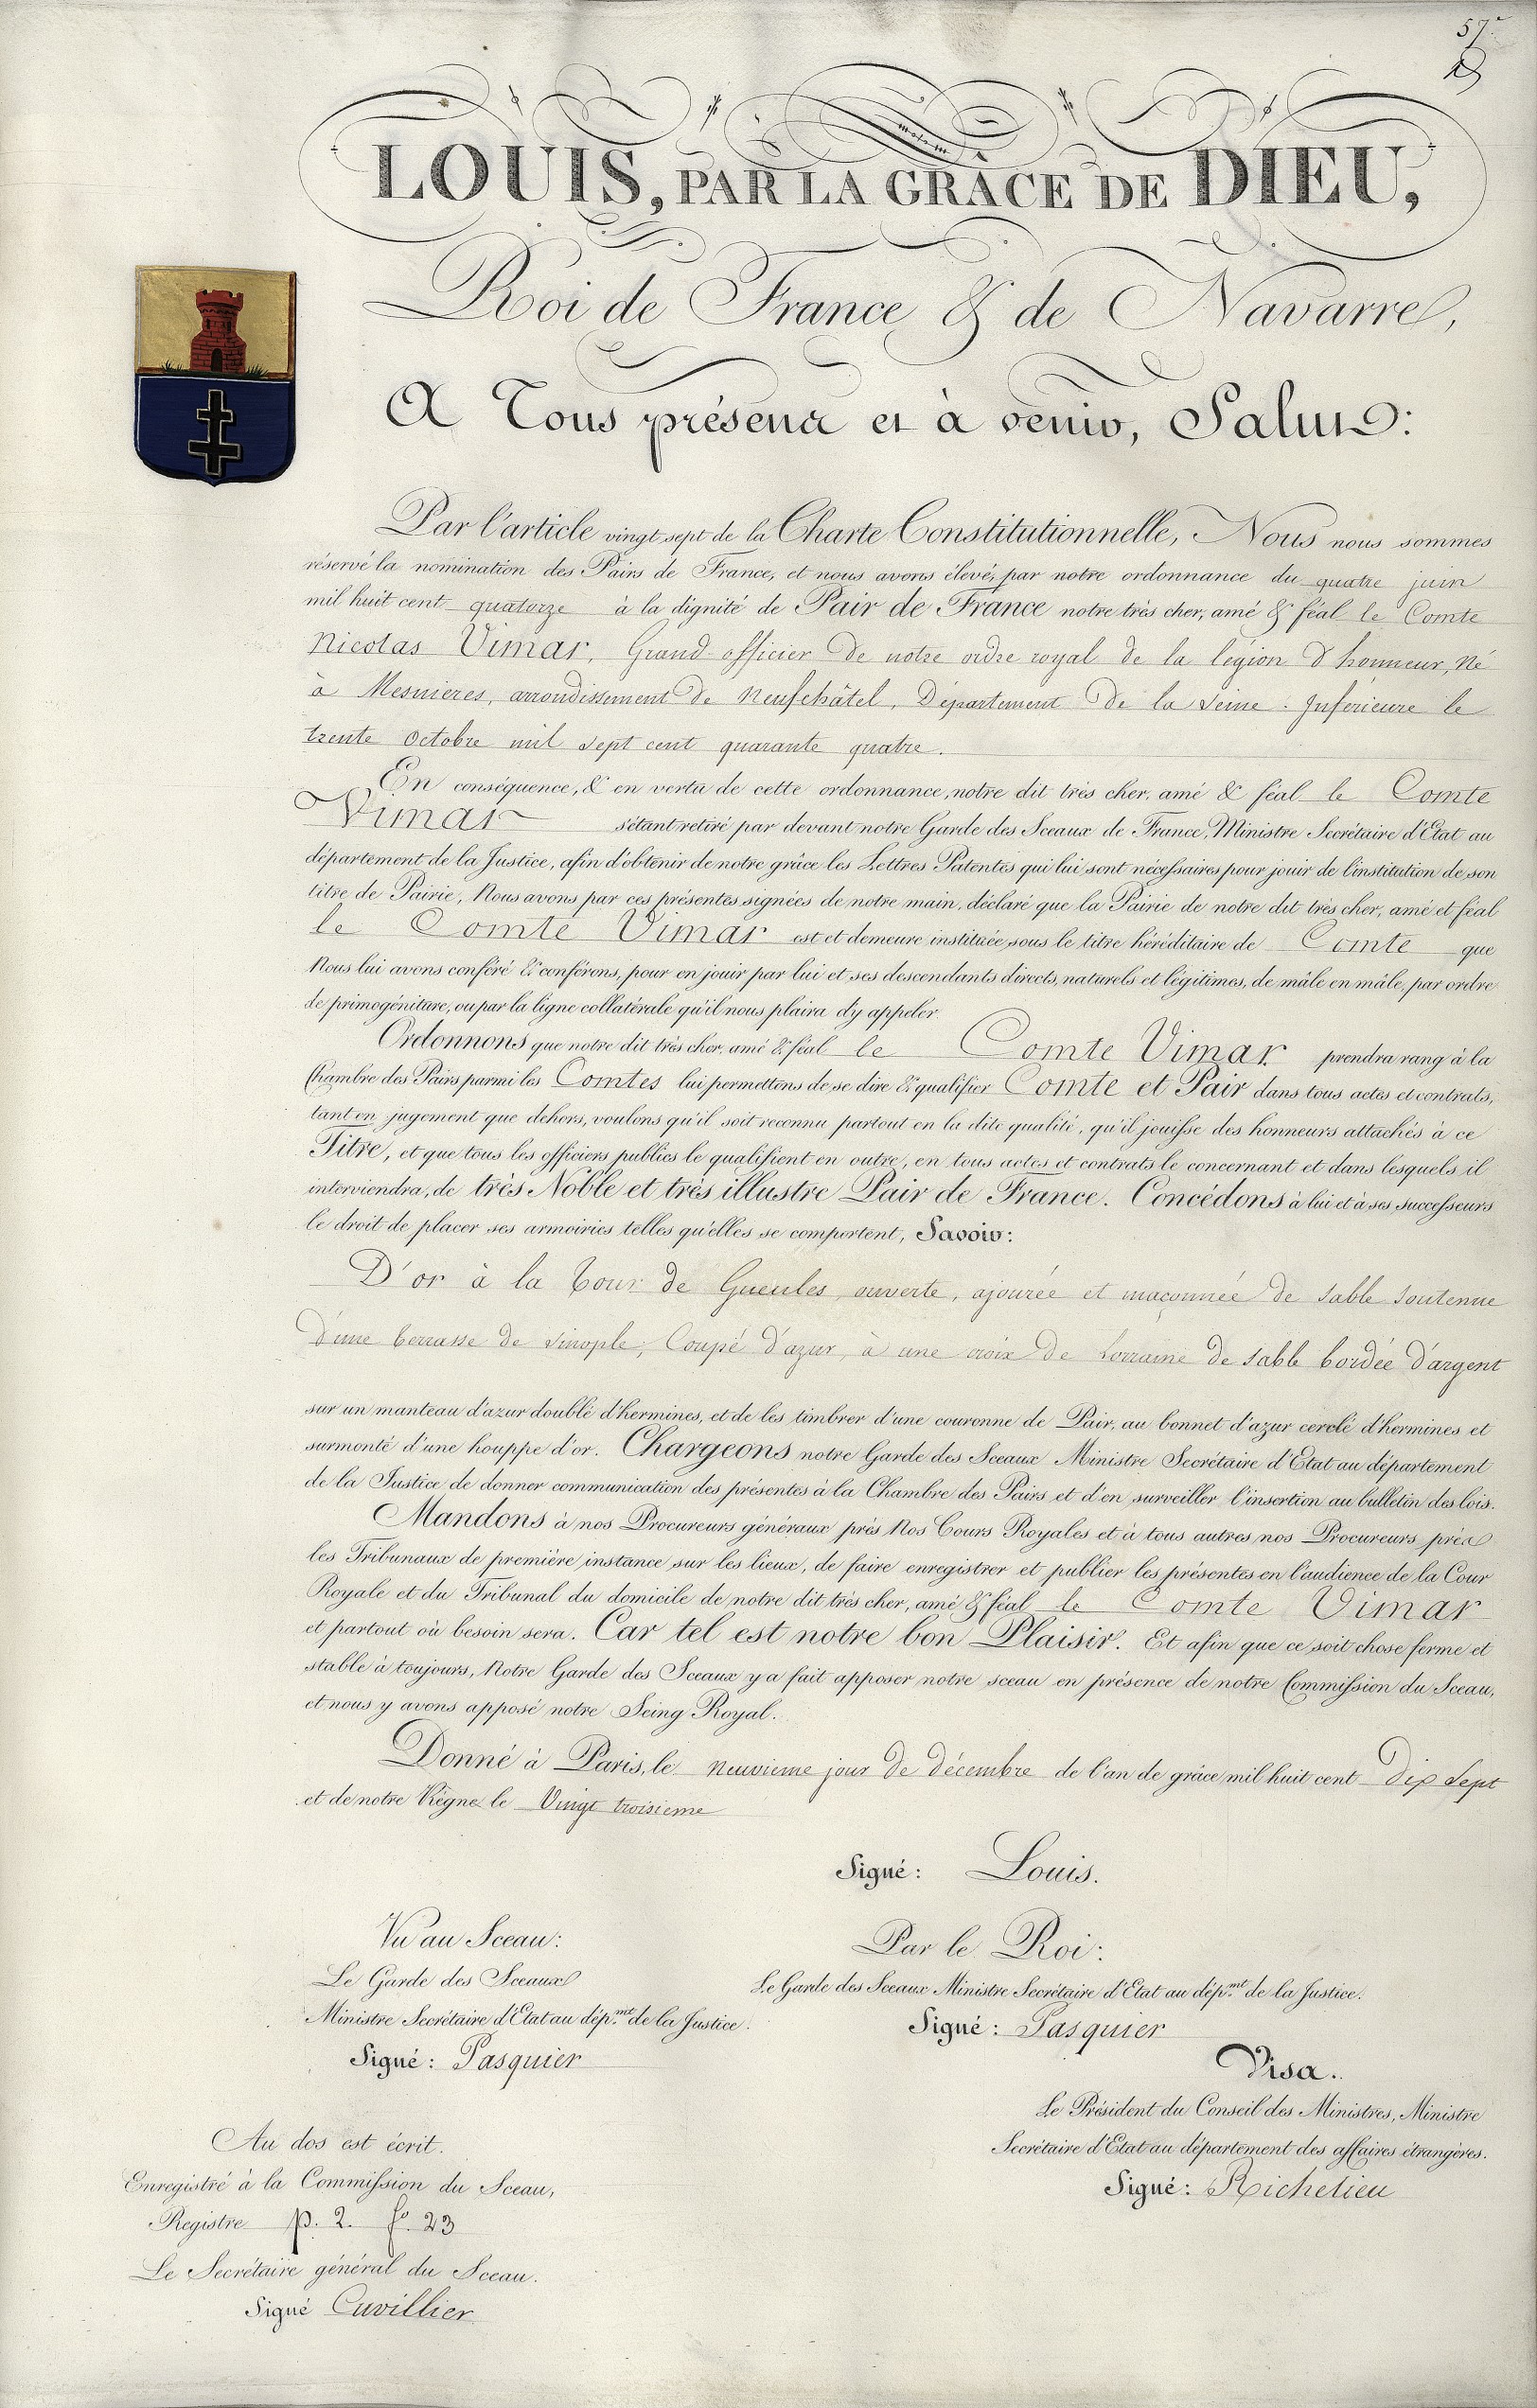 57e
LOUIS, PAR LA GRÂCE DE DIEU,
Roi de France & de Navarre,
A Tous présens et à venir, Salut:
Par l'article vingt sept de la Charte Constitutionnelle, Nous nous sommes
réservé la nomination des Pairs de France, et nous avons élevé, par notre ordonnance du quatre juin
mil huit cent quatorze à la dignité de Pair de France notre très cher, amé & féal le Comte
Nicolas Vimar, Grand-officier de notre ordre royal de la légion d'honneur, Né
à Mesnieres, arrondissement de Neufchâtel, Département de la Seine-Inferieure le
trente octobre mil sept cent quarante quatre.
En conséquence, & en vertu de cette ordonnance, notre dit très cher, amé & féal le Comte
Vimar s'étant retiré par devant notre Garde des Sceaux de France, Ministre Secrétaire d'Etat au
département de la Justice, afin d'obtenir de notre grâce les Lettres Patentes qui lui sont nécessaires pour jouir de l'institution de son
titre de Pairie, Nous avons par ces présentes signées de notre main, déclaré que la Pairie de notre dit très cher, amé et féal
le Comte Vimar est et demeure instituée sous le titre héréditaire de Comte que
Nous lui avons conféré & conférons, pour en jouir par lui et ses descendants directs, naturels et légitimes, de mâle en mâle, par ordre
de primogéniture, ou par la ligne collatérale qu'il nous plaira d'y appeler.
Ordonnons que notre dit très cher, amé & féal le Comte Vimar prendra rang à la
Chambre des Pairs parmi les Comtes lui permettons de se dire & qualifier Comte et Pair dans tous actes et contrats,
tant en jugement que dehors, voulons qu'il soit reconnu partout en la dite qualité, qu'il jouisse des honneurs attachés à ce
Titre, et que tous les officiers publics le qualifient en outre, en tous actes et contrats le concernant et dans lesquels il
interviendra, de très Noble et très illustre Pair de France. Concédons à lui et à ses successeurs
le droit de placer ses armoiries telles qu'elles se comportent, Savoir:
D'or à la Tour de Gueules, ouverte, ajourée et maçonnée de sable soutenue
d'une terrasse de sinople; Coupé d'azur, à une croix de Lorraine de sable bordée d'argent
sur un manteau d'azur doublé d'hermines, et de les timbrer d'une couronne de Pair, au bonnet d'azur cerclé d'hermines et
surmonté d'une houppe d'or. Chargeons notre Garde des Sceaux Ministre Secrétaire d'Etat au département
de la Justice de donner communication des présentes à la Chambre des Pairs et d'en surveiller l'insertion au bulletin des lois.
Mandons à nos Procureurs généraux près Nos Cours Royales et à tous autres nos Procureurs près
les Tribunaux de première instance sur les lieux, de faire enregistrer et publier les présentes en l'audience de la Cour
Royale et du Tribunal du domicile de notre dit très cher, amé & féal le Comte Vimar
et partout où besoin sera. Car tel est notre bon Plaisir. Et afin que ce soit chose ferme et
stable à toujours, Notre Garde des Sceaux y a fait apposer notre sceau en présence de notre Commission du Sceau,
et nous y avons apposé notre Seing Royal.
Donné à Paris, le neuvieme jour de décembre de l'an de grâce mil huit cent dix sept
et de notre Règne le Vingt troisieme
Signé: Louis.
Vu au Sceau:
Le Garde des Sceaux
Ministre Secrétaire d'Etat au dép.mt de la Justice.
Signé: Pasquier
Par le Roi:
Le Garde des Sceaux Ministre Secrétaire d'Etat au dép.mt de la Justice.
Signé: Pasquier
Visa.
Le Président du Conseil des Ministres, Ministre
Secrétaire d'Etat au département des affaires étrangères.
Signé: Richelieu
Au dos est écrit.
Enregistré à la Commission du Sceau,
Registre p. 2. fo. 23
Le Secrétaire général du Sceau.
Signé Cuvillier